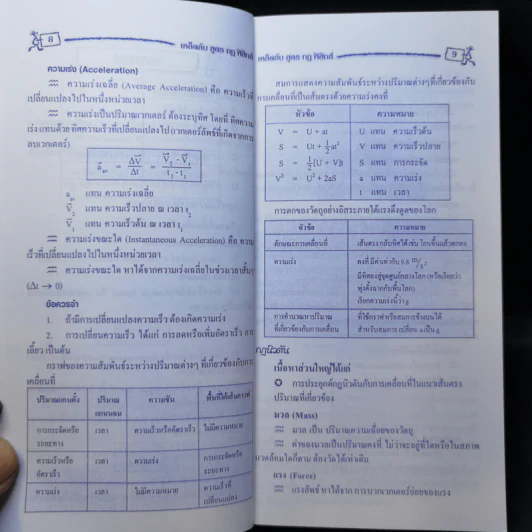 8
เคล็ดลับ สูตร กฎ ฟิสิกส์
ความเร่ง (Acceleration)
ความเร่งเฉลี่ย (Average Acceleration) คือ ความเร็วที่
เปลี่ยนแปลงไปในหนึ่งหน่วยเวลา
ความเร่งเป็นปริมาณเวกเตอร์ ต้องระบุทิศ โดยที่ ทิศความ
เร่ง แทนด้วย ทิศความเร็วที่เปลี่ยนแปลงไป (เวกเตอร์ลัพธ์ที่เกิดจากการ
ลบเวกเตอร์)
a⃗av = ΔV⃗/Δt = (V⃗2 - V⃗1)/(t2 - t1)
a⃗av แทน ความเร่งเฉลี่ย
V⃗2 แทน ความเร็วปลาย ณ เวลา t2
V⃗1 แทน ความเร็วต้น ณ เวลา t1
ความเร่งขณะใด (Instantaneous Acceleration) คือ ความ
เร็วที่เปลี่ยนแปลงไปในหนึ่งหน่วยเวลา
ความเร่งขณะใด หาได้จากความเร่งเฉลี่ยในช่วงเวลาสั้นๆ
(Δt → 0)
ข้อควรจำ
1. ถ้ามีการเปลี่ยนแปลงความเร็ว ต้องเกิดความเร่ง
2. การเปลี่ยนความเร็ว ได้แก่ การลดหรือเพิ่มอัตราเร็ว การ
เลี้ยว เป็นต้น
กราฟของความสัมพันธ์ระหว่างปริมาณต่างๆ ที่เกี่ยวข้องกับการ
เคลื่อนที่
ปริมาณแกนตั้ง ปริมาณแกนนอน ความชัน พื้นที่ใต้เส้นกราฟ
การกระจัดหรือระยะทาง เวลา ความเร็วหรืออัตราเร็ว ไม่มีความหมาย
ความเร็วหรืออัตราเร็ว เวลา ความเร่ง การกระจัดหรือระยะทาง
ความเร่ง เวลา ไม่มีความหมาย ความเร็วที่เปลี่ยนแปลง
เคล็ดลับ สูตร กฎ ฟิสิกส์
9
สมการแสดงความสัมพันธ์ระหว่างปริมาณต่างๆที่เกี่ยวข้องกับ
การเคลื่อนที่เป็นเส้นตรงด้วยความเร่งคงที่
หัวข้อ ความหมาย
V = U + at U แทน ความเร็วต้น
S = Ut + ½at² V แทน ความเร็วปลาย
S = ½[U + V]t S แทน การกระจัด
V² = U² + 2aS a แทน ความเร่ง
t แทน เวลา
การตกของวัตถุอย่างอิสระภายใต้แรงดึงดูดของโลก
หัวข้อ ความหมาย
ลักษณะการเคลื่อนที่ เส้นตรง กลับทิศได้ เช่น โยนขึ้นแล้วตกลง
ความเร่ง คงที่ มีค่าเท่ากับ 9.8 m/s²
มีทิศลงสู่จุดศูนย์กลางโลก (หรือเรียกว่า
พุ่งตั้งฉากกับพื้นโลก)
เรียกความเร่งนี้ว่า g
การคำนวณหาปริมาณ ที่ใช้กราฟ หรือสมการข้างบนได้
ที่เกี่ยวข้องกับการเคลื่อน สำหรับสมการ เปลี่ยน a เป็น g
กฎนิวตัน
เนื้อหาส่วนใหญ่ได้แก่
การประยุกต์กฎนิวตันกับการเคลื่อนที่ในแนวเส้นตรง
ปริมาณที่เกี่ยวข้อง
มวล (Mass)
มวล เป็น ปริมาณความเฉื่อยของวัตถุ
ค่าของมวลเป็นปริมาณคงที่ ไม่ว่าจะอยู่ที่ใดหรือในสภาพ
แวดล้อมใดก็ตาม ต้องวัดได้เท่าเดิม
แรง (Force)
แรงลัพธ์ หาได้จาก การบวกเวกเตอร์ย่อยของแรง